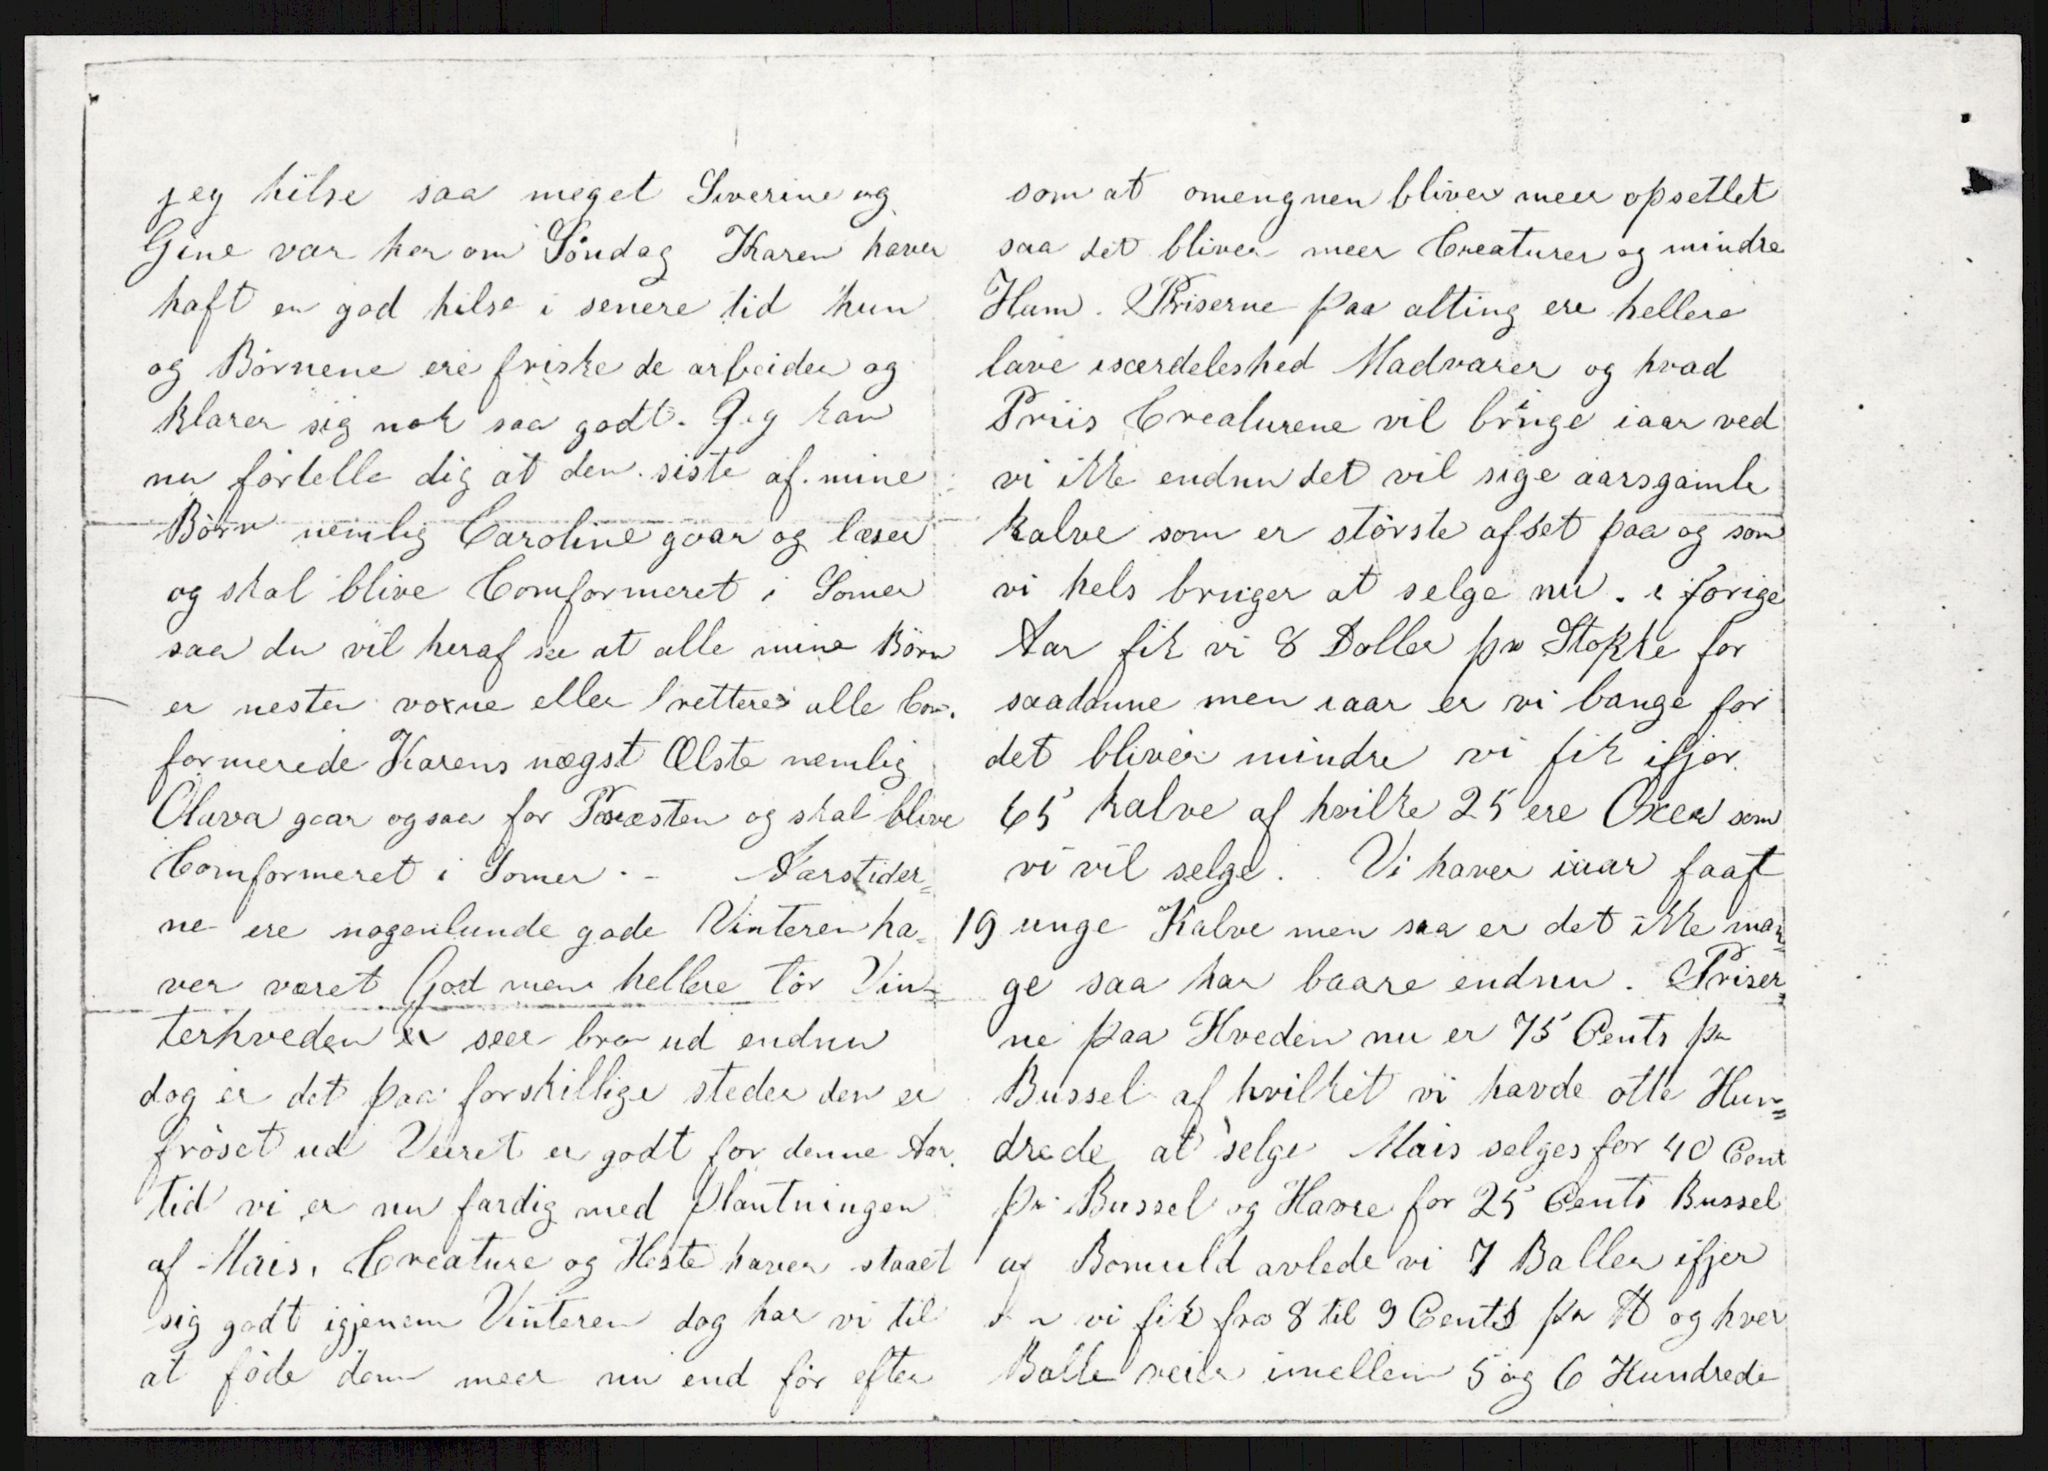 jeg hilse saa meget Siverine og
Gine var her om Söndag Karen haver
haft en god hilse i senere tid hun
og Börnene ere friske de arbeider og
klarer sig nok saa godt. Jeg kan
nu fortelle dig at den siste af mine
Börn nemlig Caroline gaar og læser
og skal blive Comformeret i Somer
saa du vil heraf see at alle mine Börn
er nesten voxne eller rettere alle Con-
formerede Karens nægst Ælste nemlig
Olava gaar ogsaa for Præsten og skal blive
Comformeret i Somer. - Aarstider=
ne ere nogenlunde gode Vinteren ha=
ver været God men hellere tör Vin=
terhveden seer bra ud endnu
dog er det paa forskillige steder den er
fröset ud Veiret er godt for denne Aar.
tid vi er nu færdig med Plantningen
af Mais. Creature og Heste haver staaet
sig godt igjenem Vinteren dog har vi til
at föde dem meer nu end för efter
som at omengnen bliver meer opsetlet
saa det bliver meer Creaturer og mindre
Ham. Priserne paa alting ere hellere
lave isærdeleshed Madvarer og hvad
Priis Creaturene vil bringe iaar ved
vi ikke endnu det vil sige aarsgamle
kalve som er störste afset paa og som
vi hels bruger at selge nu. i forige
Aar fik vi 8 Doller pr Stokke for
saadanne men iaar er vi bange for
det bliver mindre vi fik ifjor
65 kalve af hvilke 25 ere Oxer som
vi vil selge. Vi haver iaar faaft
19 unge Kalve men saa er det ikke man=
ge saa har baare endnu. Priser=
ne paa Hveden nu er 75 Cents pr
Bussel af hvilket vi havde otte Hun=
drede at selge Mais selges for 40 Cent
pr Bussel og Havre for 25 Cents Bussel
af Bomuld avlede vi 7 Baller ifjer
vi fik fra 8 til 9 Cents pr ℔ og hver
Balle veier imellem 5 og 6 Hundrede